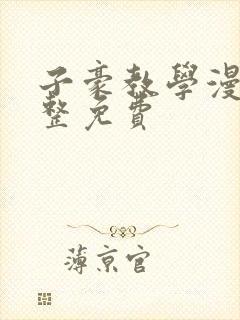 子豪教學漫
整免費
薄京官